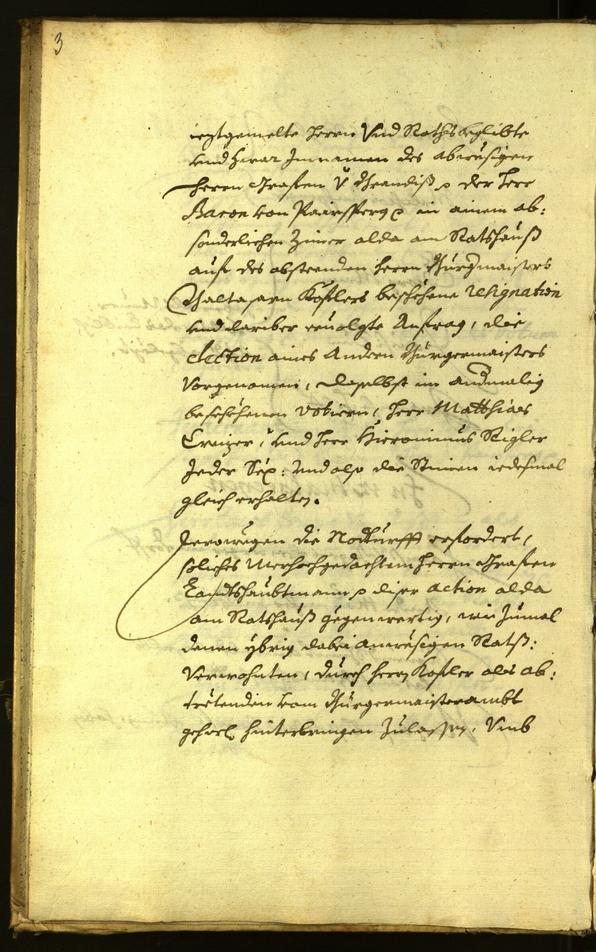 3
ieztgemelte Herrn Vnd Rathsverlibte
vnd zwar Jm namen des abwesigen
Herrn Grafen v Brandiß p der Herr
Baron von Pairsperg p in ainem ab:
sonderlichen Zimer alda am Ratshauß
auf des abstendten Herrn Burgmaisters
Balthasarn Koflers beschehene resignation
vnd dariber ervolgte Anfrag, die
election aines Andern Burgermaisters
vorgenomen, daselbst im andmalig
beschehenen votiern, Herr Matthias
Creizer, vnd Herr Hieronimus Rigler
Jeder Sex: vnd also die Stimen iedesmal
gleich erhalten.
Derowegen die Nodturfft erfordert,
solliches Merhochgedachtem Herrn Grafen
Landtshaubtmann p diser action alda
am Ratshauß gegenwertig, wie Zumal
denen ybrig dabei anwesigen Ratß:
Verwohnten, durch Herrn Kofler als ab:
trettenden vom Burgermaisterambt
gehors. hinterbringen Zulassen, Vmb